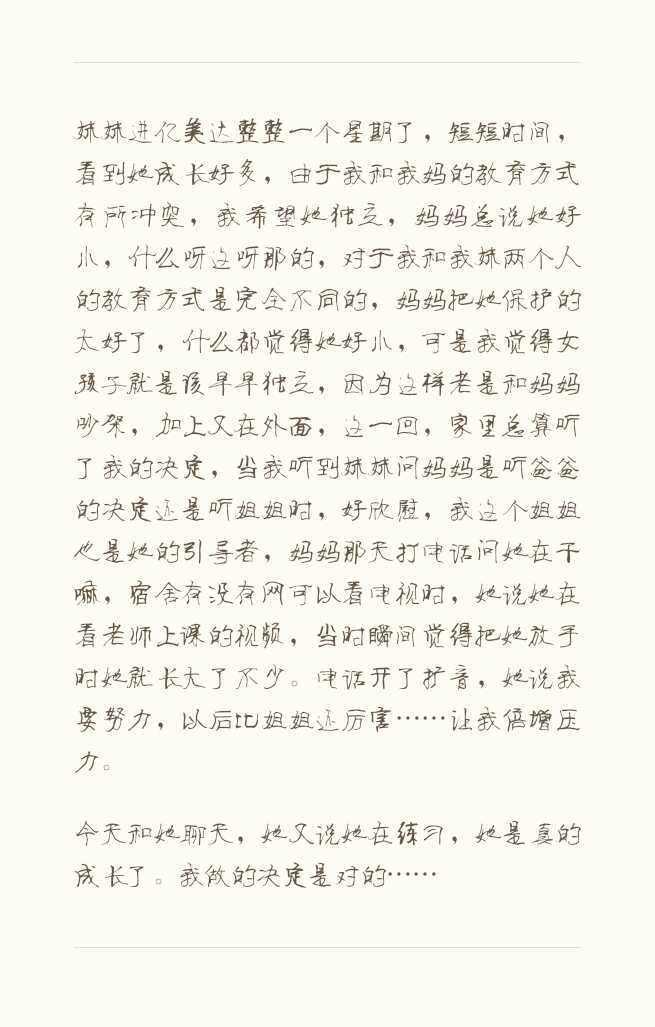 妹妹进亿美达整整一个星期了，短短时间，
看到她成长好多，由于我和我妈的教育方式
有所冲突，我希望她独立，妈妈总说她好
小，什么呀这呀那的，对于我和我妹两个人
的教育方式是完全不同的，妈妈把她保护的
太好了，什么都觉得她好小，可是我觉得女
孩子就是该早早独立，因为这样老是和妈妈
吵架，加上又在外面，这一回，家里总算听
了我的决定，当我听到妹妹问妈妈是听爸爸
的决定还是听姐姐时，好欣慰，我这个姐姐
也是她的引导者，妈妈那天打电话问她在干
嘛，宿舍有没有网可以看电视时，她说她在
看老师上课的视频，当时瞬间觉得把她放手
时她就长大了不少。电话开了扩音，她说我
要努力，以后比姐姐还厉害……让我倍增压
力。
今天和她聊天，她又说她在练习，她是真的
成长了。我做的决定是对的……